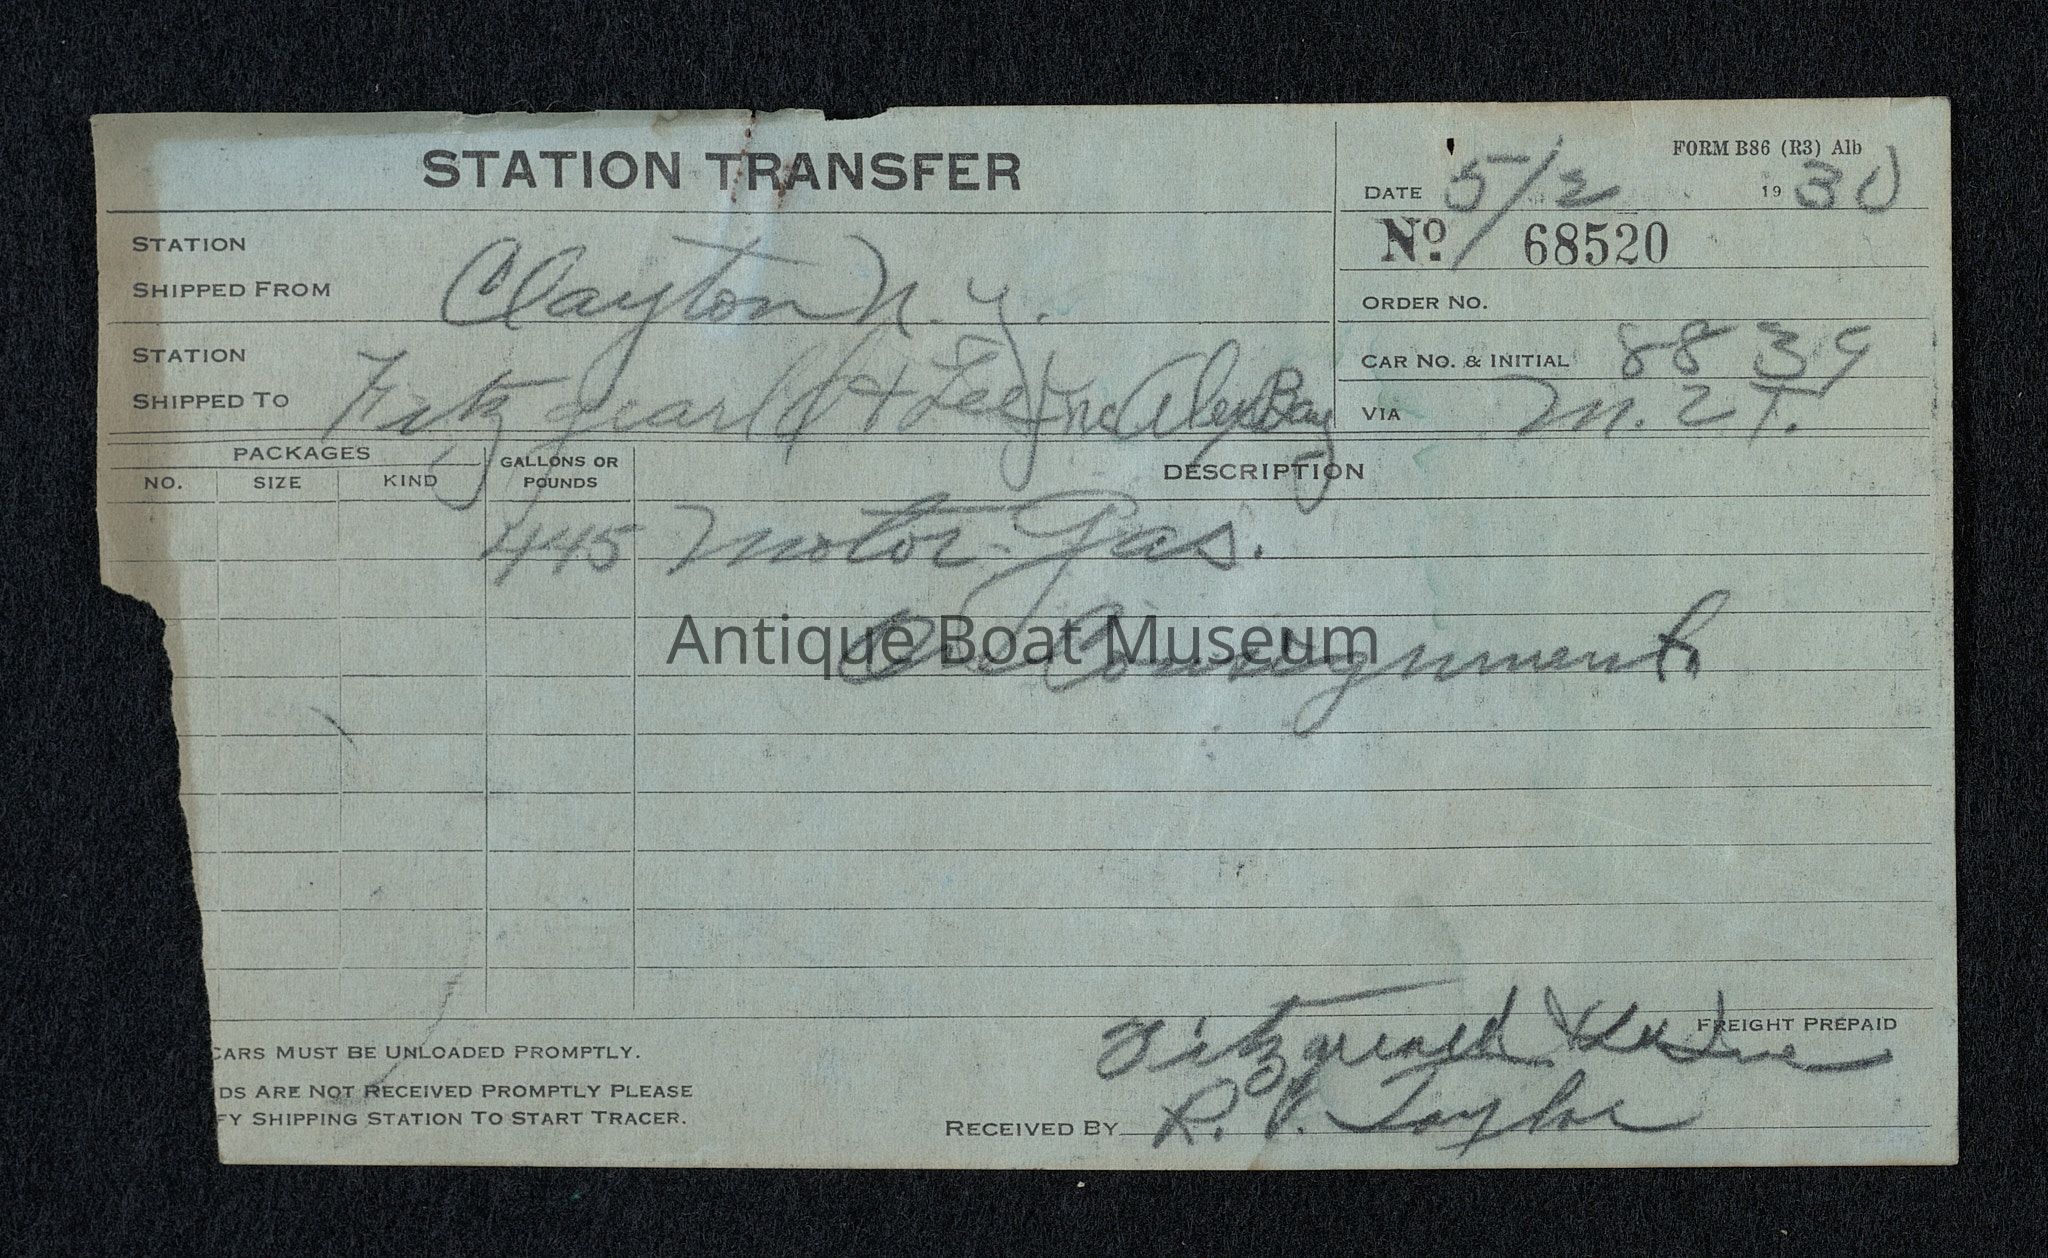 STATION TRANSFER
FORM B86 (R3) Alb
DATE 5/2 1930
No. 68520
STATION
SHIPPED FROM Clayton N.Y.
ORDER NO.
STATION
SHIPPED TO Fitzgearld & Lee Inc Alex Bay
CAR NO. & INITIAL 8839
VIA M.2T.
PACKAGES
NO. SIZE KIND
GALLONS OR
POUNDS
DESCRIPTION
445 Motor Gas.
On Consignment
Antique Boat Museum
FREIGHT PREPAID
CARS MUST BE UNLOADED PROMPTLY.
Fitzgerald & Lee Inc
DS ARE NOT RECEIVED PROMPTLY PLEASE
FY SHIPPING STATION TO START TRACER.
RECEIVED BY R. V. Taylor